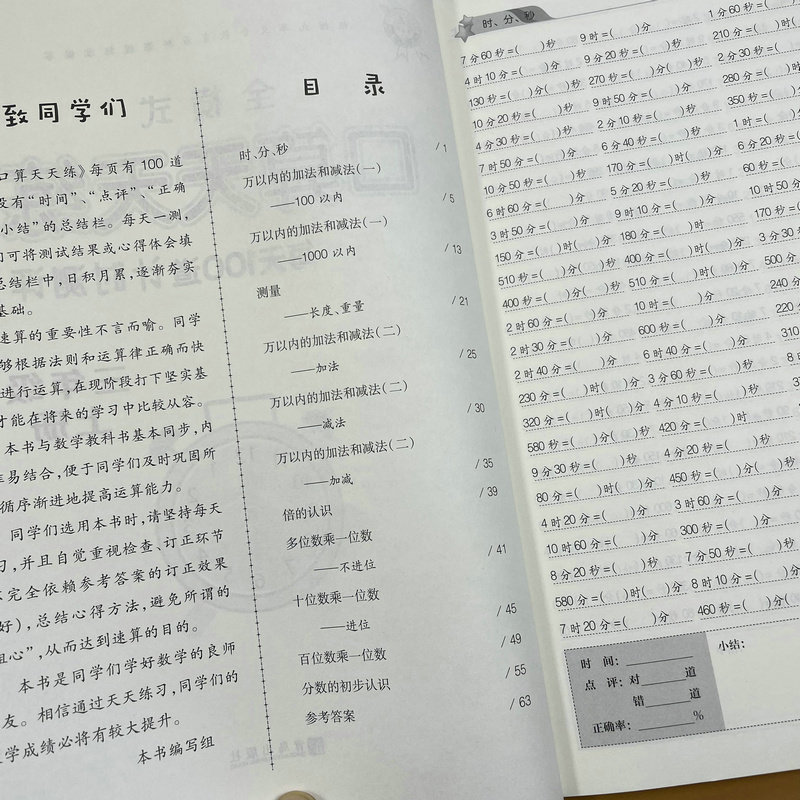 致同学们
口算天天练》每页有 100 道
设有“时间”、“点评”、“正确
小结”的总结栏。每天一测，
们可将测试结果或心得体会填
总结栏中，日积月累，逐渐夯实
基础。
速算的重要性不言而喻。同学
够根据法则和运算律正确而快
进行运算，在现阶段打下坚实基
才能在将来的学习中比较从容。
本书与数学教科书基本同步，内
难易结合，便于同学们及时巩固所
循序渐进地提高运算能力。
同学们选用本书时，请坚持每天
习，并且自觉重视检查、订正环节
完全依赖参考答案的订正效果
好），总结心得方法，避免所谓的
粗心”，从而达到速算的目的。
本书是同学们学好数学的良师
友。相信通过天天练习，同学们的
学成绩必将有较大提升。
本书编写组
目 录
时、分、秒 / 1
万以内的加法和减法(一)
——100 以内 / 5
万以内的加法和减法(一)
——1000 以内 / 13
测量
——长度、重量 / 21
万以内的加法和减法(二)
——加法 / 25
万以内的加法和减法(二)
——减法 / 30
万以内的加法和减法(二)
——加减 / 35
倍的认识 / 39
多位数乘一位数
——不进位 / 41
十位数乘一位数
——进位 / 45
百位数乘一位数 / 49
分数的初步认识 / 55
参考答案 / 63
时、分、秒
7 分 60 秒 =( )秒 9 时 =( )分 1 分 60 秒 =(
4 时 10 分 =( )分 9 分 20 秒 =( )秒 210 分 =(
130 秒 =( )分( )秒 270 秒 =( )分( )秒 2 分 30 秒 =(
10 分 20 秒 =( )秒 9 时 50 分 =( )分 280 分 =(
4 分 30 秒 =( )秒 2 分 10 秒 =( )秒 350 秒 =(
7 时 50 分 =( )分 6 分 40 秒 =( )秒 1 时 =(
10 分 50 秒 =( )秒 170 分 =( )时( )分 6 分 20 秒
6 时 60 分 =( )分 5 分 20 秒 =( )秒 60 秒 =(
3 时 50 分 =( )分 9 时 10 分 =( )分 10 时 50 分
150 分 =( )时( )分 180 分 =( )时 170 秒 =(
510 秒 =( )分( )秒 400 分 =( )时( )分 3 分 30 秒
400 秒 =( )分( )秒 510 分 =( )时( )分 500 分
2 时 60 分 =( )分 10 时 =( )分 240 分
2 时 30 分 =( )分 600 秒 =( )分 220
2 时 40 分 =( )分 6 时 40 分 =( )分 310
230 分 =( )时( )分 3 分 60 秒 =( )秒 8
320 分 =( )时( )分 4 分 10 秒 =( )秒
580 秒 =( )分( )秒 420 分 =( )时
9 分 30 秒 =( )秒 4 分 20 秒 =( )秒
80 分 =( )时( )分 450 秒 =( )分( )秒
4 时 20 分 =( )分 3 时 60 分 =( )分
10 时 60 分 =( )分 300 秒 =( )分
8 分 20 秒 =( )秒 7 分 50 秒 =( )秒
580 分 =( )时( )分 8 时 10 分 =( )分
7 时 20 分 =( )分 460 秒 =( )分(
时 间：
点 评：对 道
错 道
正确率： %
小结：